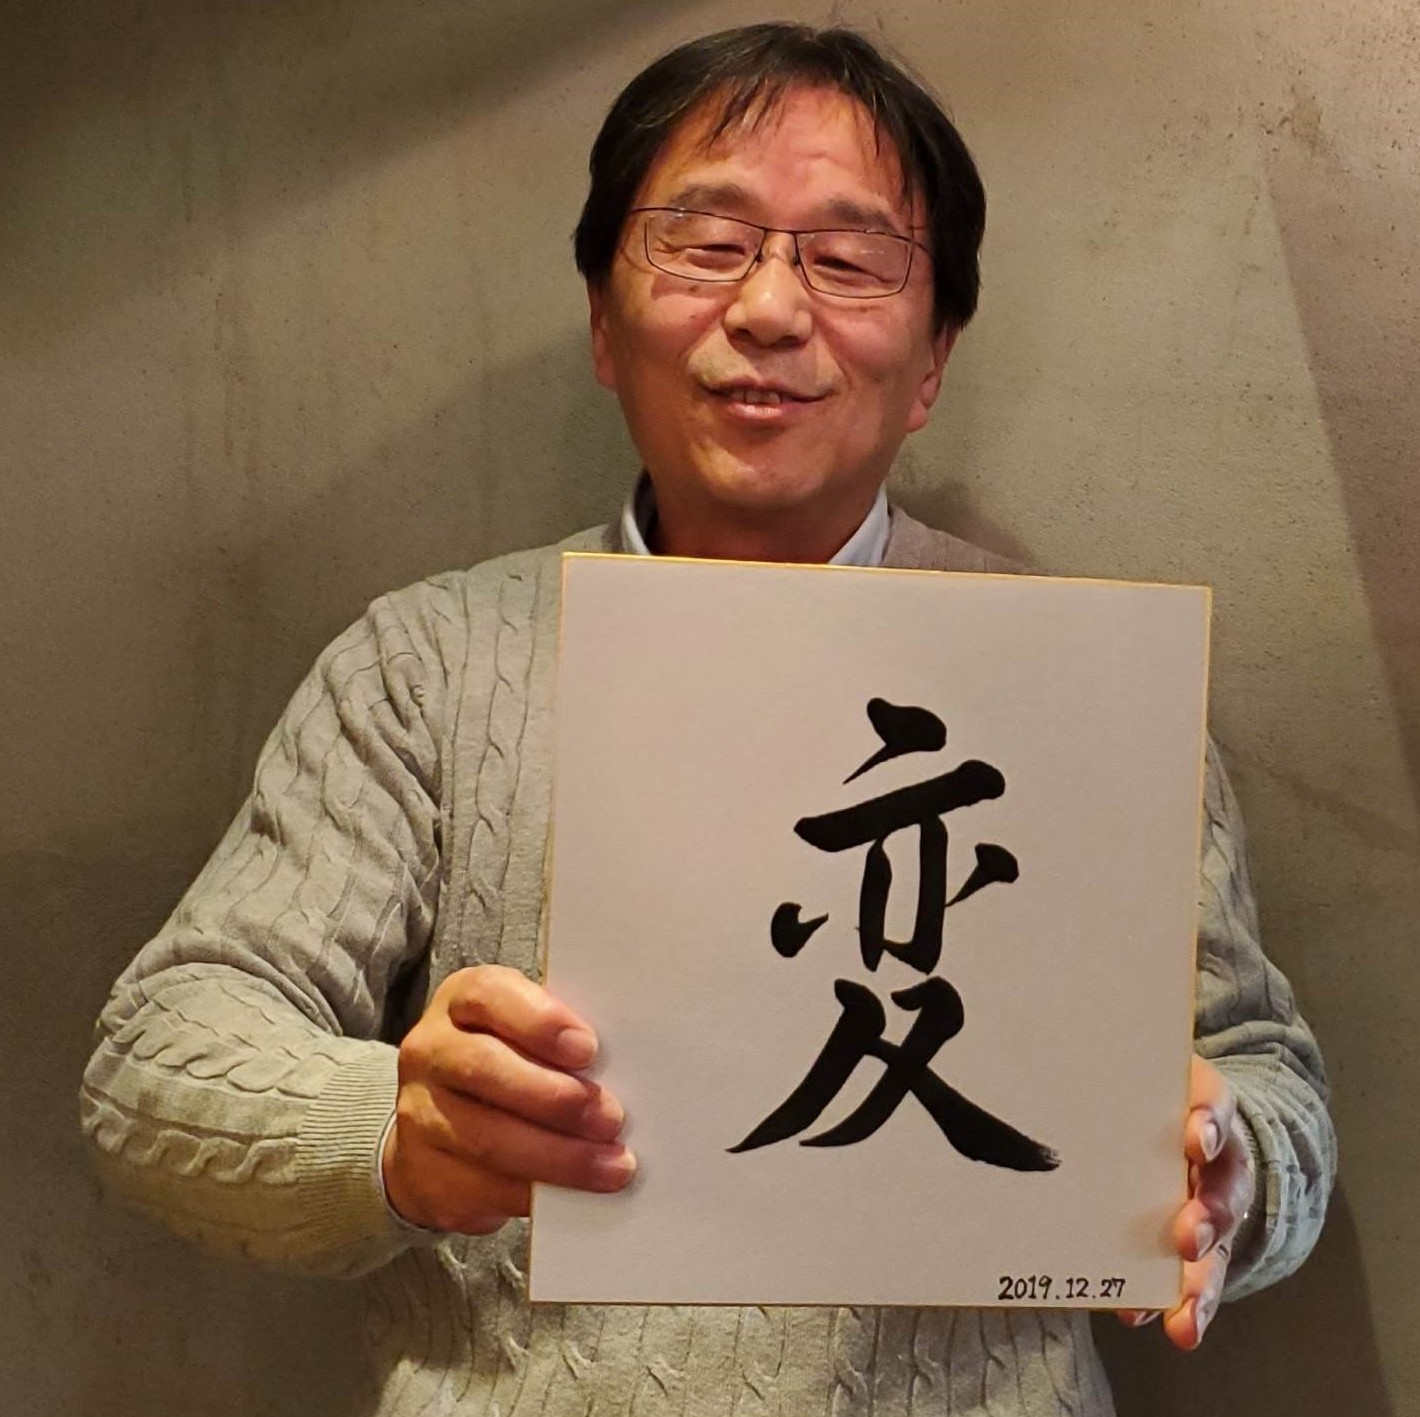 変
2019.12.27